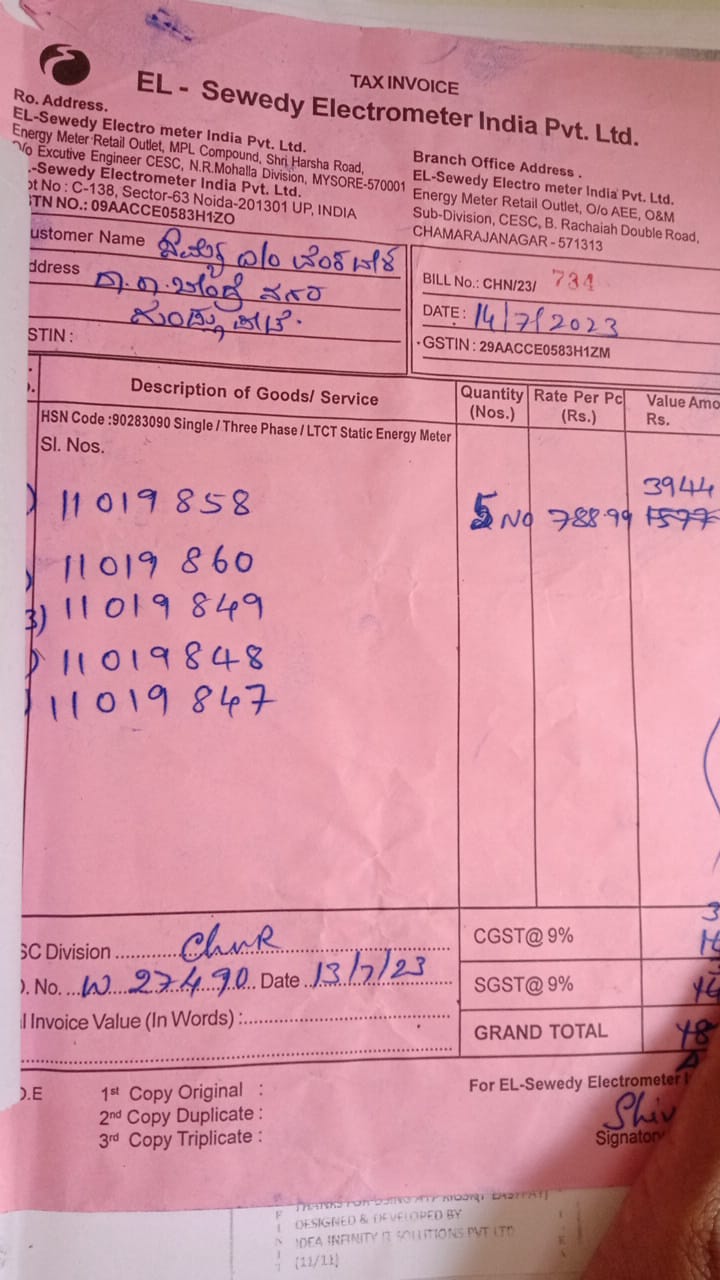 TAX INVOICE
EL - Sewedy Electrometer India Pvt. Ltd.
Ro. Address.
EL-Sewedy Electro meter India Pvt. Ltd.
Energy Meter Retail Outlet, MPL Compound, Shri Harsha Road,
/o Excutive Engineer CESC, N.R.Mohalla Division, MYSORE-570001
-Sewedy Electrometer India Pvt. Ltd.
ot No : C-138, Sector-63 Noida-201301 UP, INDIA
STN NO.: 09AACCE0583H1ZO
Branch Office Address .
EL-Sewedy Electro meter India Pvt. Ltd.
Energy Meter Retail Outlet, O/o AEE, O&M
Sub-Division, CESC, B. Rachaiah Double Road,
CHAMARAJANAGAR - 571313
ustomer Name
ddress
STIN :
BILL No.: CHN/23/ 734
DATE : 14/7/2023
GSTIN : 29AACCE0583H1ZM
Description of Goods/ Service
Quantity (Nos.)
Rate Per Pc (Rs.)
Value Amo Rs.
HSN Code :90283090 Single / Three Phase / LTCT Static Energy Meter
Sl. Nos.
) 11019858 5 No 788.99 3944
) 11019860
3) 11019849
) 11019848
) 11019847
SC Division ChnR
. No. W 27490 Date 13/7/23
l Invoice Value (In Words) :
CGST@ 9%
SGST@ 9%
GRAND TOTAL 48
O.E 1st Copy Original :
2nd Copy Duplicate :
3rd Copy Triplicate :
For EL-Sewedy Electrometer I
Shiv
Signatory
DESIGNED & DEVELOPED BY
IDEA INFINITY IT SOLUTIONS PVT LTD
(11/11)